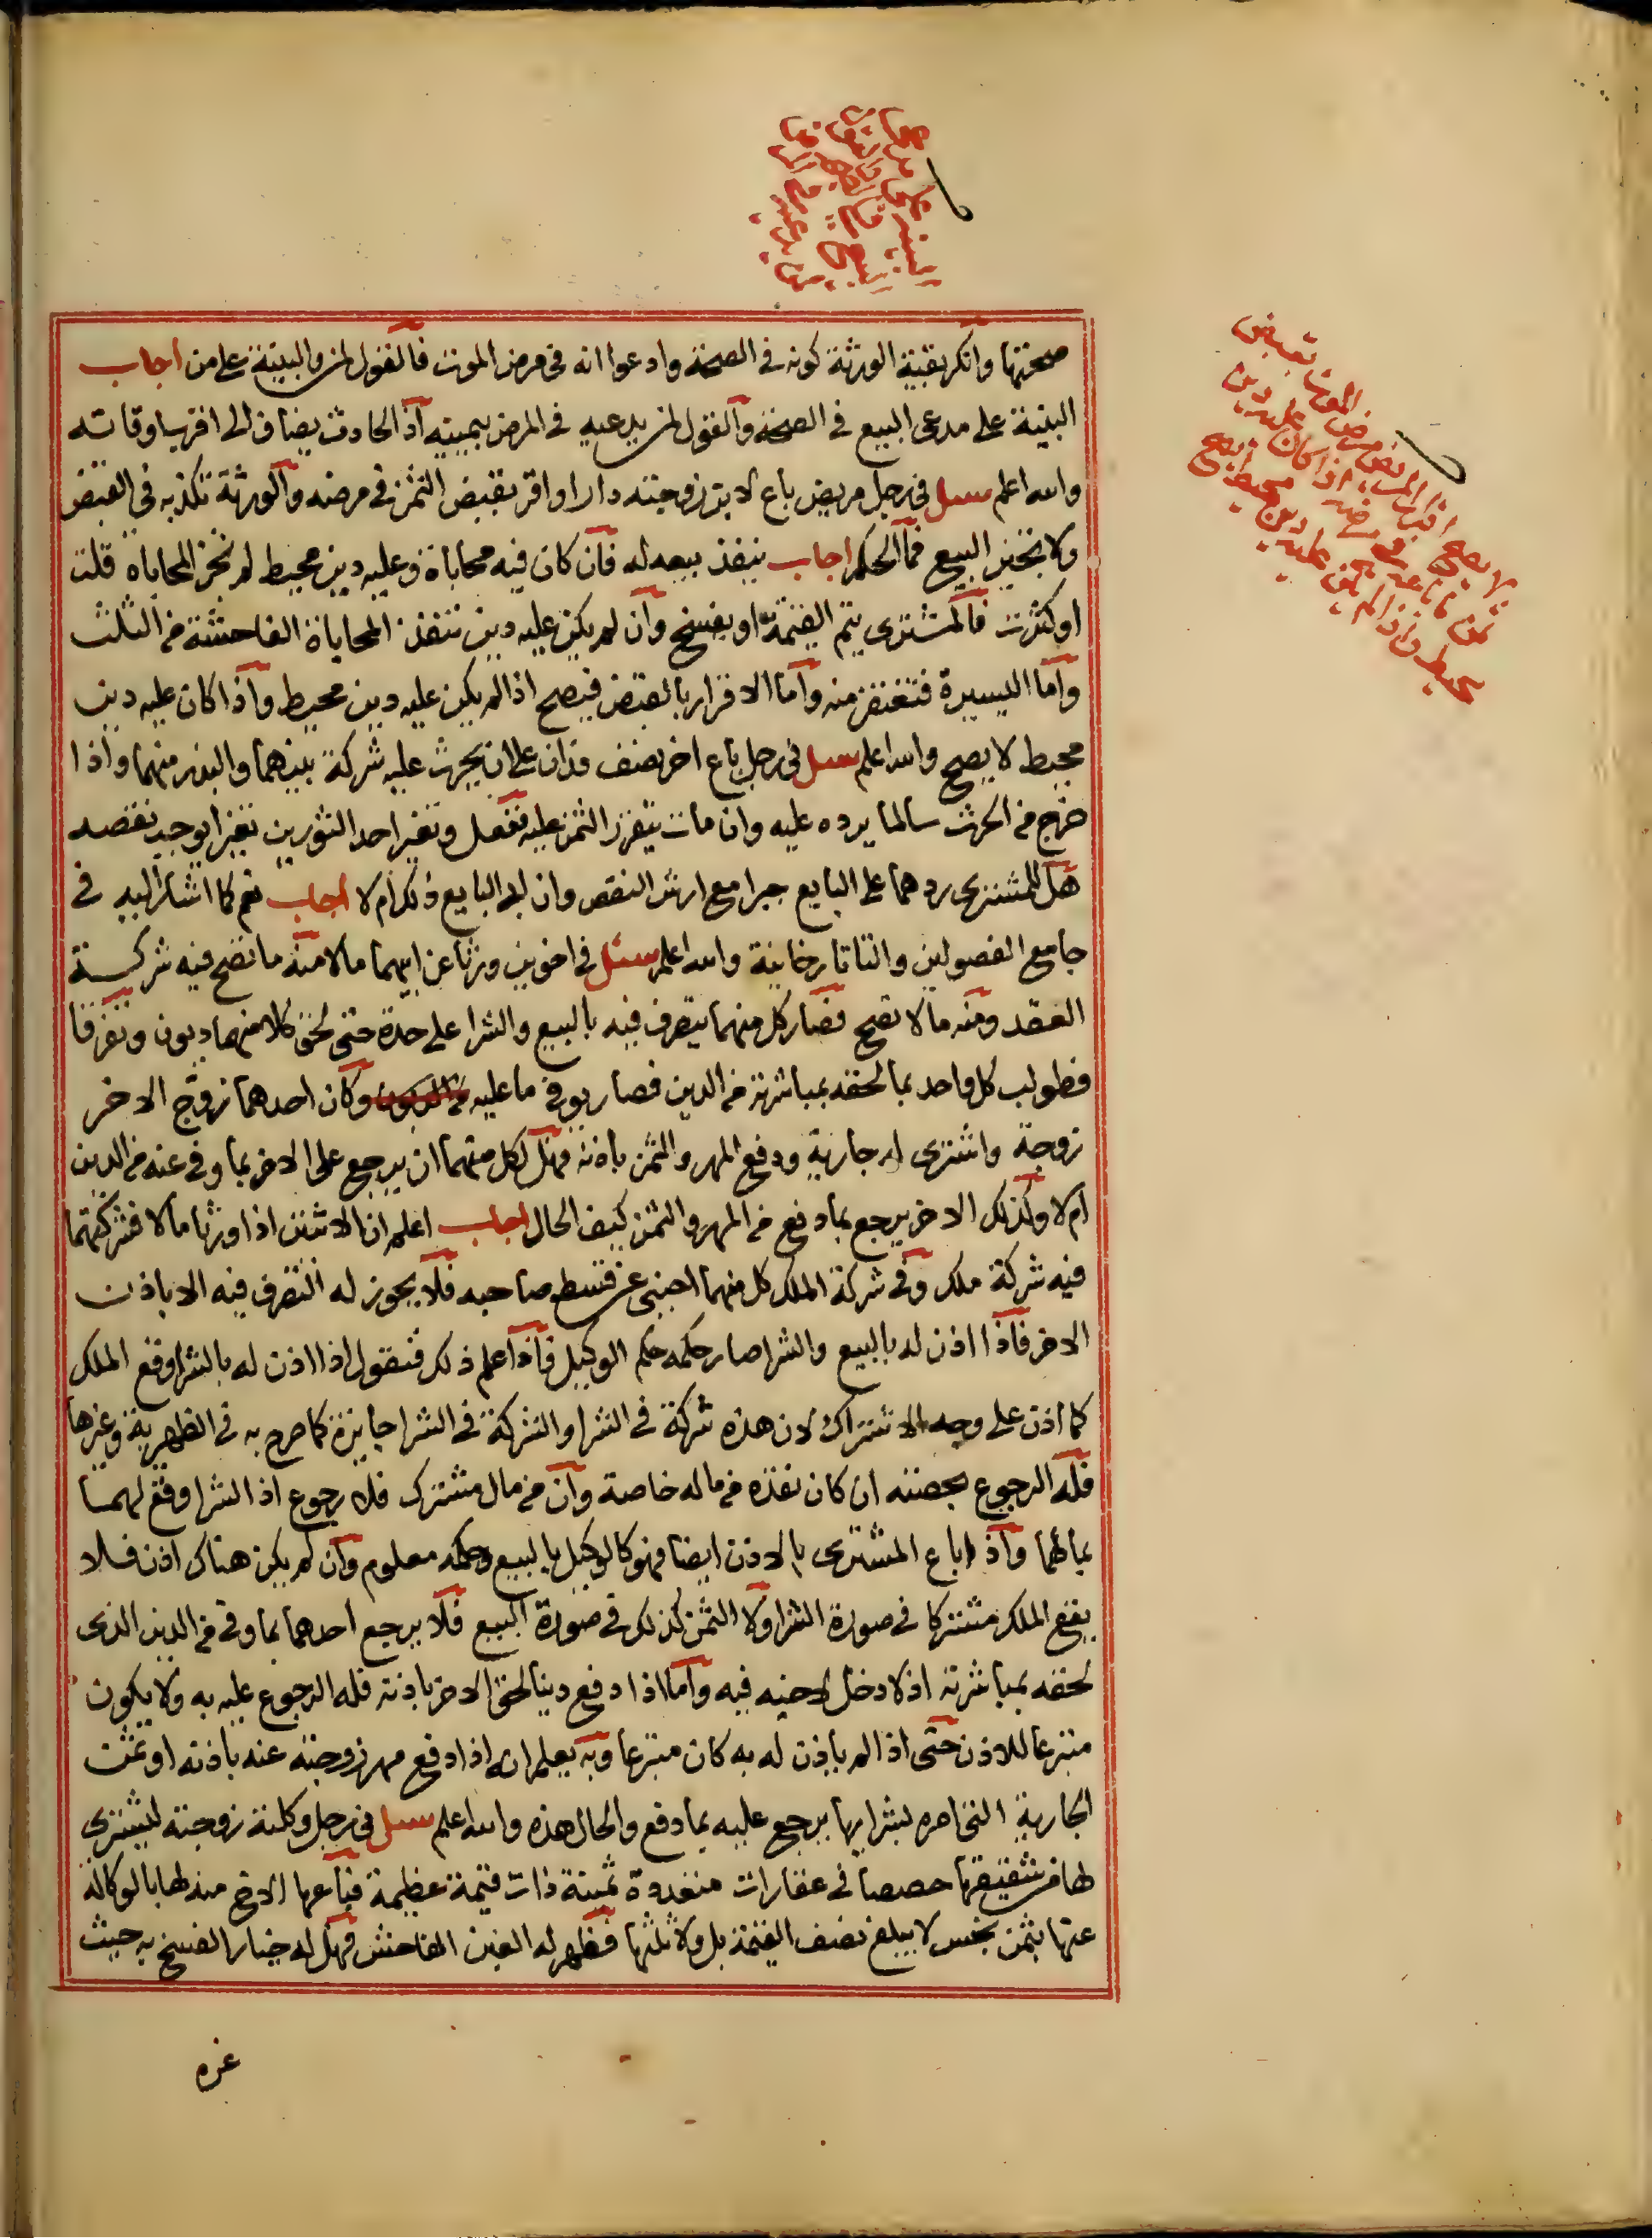 صحتها وانكر بقية الورثة كونه في الصحة وادعوا انه في مرض الموت فالقول لمن والبينة على من اجاب
البينة على مدعي البيع في الصحة والقول لمن يدعيه في المرض بيمينه اذ الحادث يضاف الى اقرب اوقاته
والله اعلم سئل في رجل مريض باع لابن زوجته دارا واقر بقبض الثمن في مرضه والورثة تكذبه في القبض
ولا تجيز البيع فما الحكم اجاب ينفذ بيعه له فان كان فيه محاباة وعليه دين محيط لم تجز المحاباة قلت
او كثرت فالمشتري يتم القيمة او يفسخ وان لم يكن عليه دين تنفذ المحاباة الفاحشة من الثلث
واما اليسيرة فتغتفر منه واما الاقرار بالقبض فيصح اذا لم يكن عليه دين محيط واذا كان عليه دين
محيط لا يصح والله اعلم سئل في رجل باع اخر نصف فدان على ان يحرث عليه شركة بينهما والبذر منهما واذا
خرج من الحرث سالما يرده عليه وان مات يتقرر الثمن عليه ففعل وتغير احد الثورين تغيرا يوجب نقصه
هل للمشتري ردهما على البايع جبرا مع ارش النقص وان ابى البايع ذلك ام لا اجاب نعم كما اشار اليه في
جامع الفصولين والتاتارخانية والله اعلم سئل في اخوين ورثا عن ابيهما مالا منه ما تصح فيه شركة
العقد ومنه ما لا تصح فصار كل منهما يتصرف فيه بالبيع والشرا على حدة حتى لحق كلا منهما ديون وتفرقا
فطولب كل واحد بما لحقه بمباشرته من الدين فصار يوفي ما عليه من الديون وكان احدهما زوج الاخر
زوجة واشترى له جارية ودفع المهر والثمن باذنه فهل لكل منهما ان يرجع على الاخر بما وفى عنه من الدين
ام لا وكذلك الاخر يرجع بما دفع من المهر والثمن كيف الحال اجاب اعلم ان الاثنين اذا ورثا مالا فشركتهما
فيه شركة ملك وفي شركة الملك كل منهما اجنبي عن قسط صاحبه فلا يجوز له التصرف فيه الا باذن
الاخر فاذا اذن له بالبيع والشرا صار حكمه حكم الوكيل فاذا علم ذلك فنقول اذا اذن له بالشرا وقع الملك
كما اذن على وجه الاشتراك لان هذه شركة في الشرا والشركة في الشرا جايزة كما صرح به في الظهيرية وغيرها
فله الرجوع بحصته ان كان نقده من ماله خاصة وان من مال مشترك فلا رجوع اذ الشرا وقع لهما
بمالهما واذا باع المشترى بالاذن ايضا فهو كالوكيل بالبيع وحكمه معلوم وان لم يكن هناك اذن فلا
يقع الملك مشتركا في صورة الشرا ولا الثمن كذلك في صورة البيع فلا يرجع احدهما بما وفى من الدين الذي
لحقه بمباشرته اذ لا دخل لاخيه فيه واما اذا دفع دينا لحق الاخر باذنه فله الرجوع عليه به ولا يكون
متبرعا للاذن حتى اذا لم ياذن له به كان متبرعا وبه يعلم انه اذا دفع مهر زوجته عنه باذنه او ثمن
الجارية التي امره بشرايها يرجع عليه بما دفع والحال هذه والله اعلم سئل في رجل وكلته زوجته ليشتري
لها من شقيقها حصصا في عقارات متعددة ثمينة ذات قيمة عظيمة فباعها الاخ منه لها بالوكالة
عنها بثمن بخس لا يبلغ نصف القيمة بل ولا ثلثها فظهر له الغبن الفاحش فهل له خيار الفسخ به حيث
غره